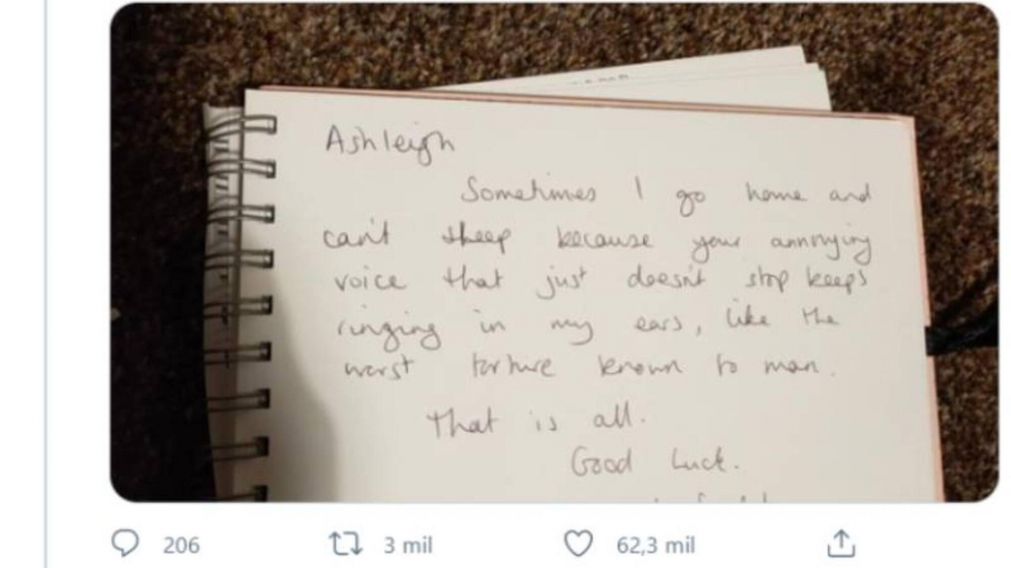 Ashleigh
Sometimes I go home and
can't sleep because your annoying
voice that just doesn't stop keeps
ringing in my ears, like the
worst torture known to man.
That is all.
Good Luck.
206 3 mil 62,3 mil